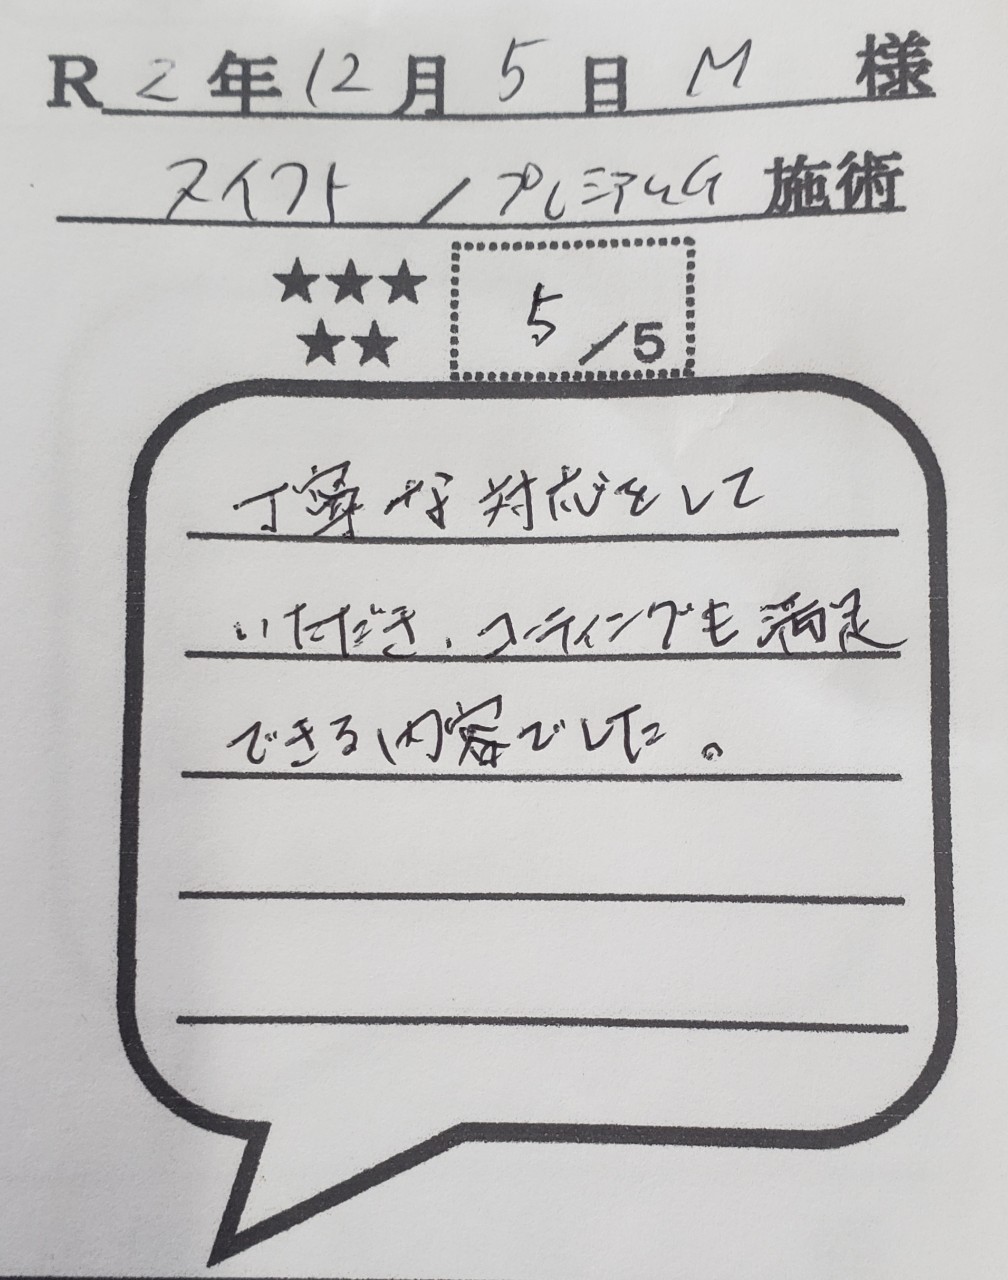 R2年12月5日 M 様
スイフト / プレミアムG 施術
★★★
5/5
★★
丁寧な対応をして
いただき、コーティングも満足
できる内容でした。